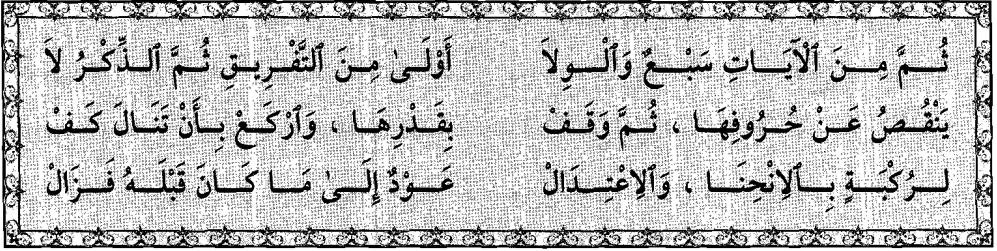 ثُمَّ مِنَ ٱلْآيَاتِ سَبْعٌ وَٱلْوِلاَ أَوْلَىٰ مِنَ ٱلتَّفْرِيقِ ثُمَّ ٱلذِّكْرُ لاَ
يَنْقُصُ عَنْ حُرُوفِهَا ، ثُمَّ وَقَفْ بِقَدْرِهَا ، وَٱرْكَعْ بِأَنْ تَنَالَ كَفْ
لِرُكْبَةٍ بِٱلِٱنْحِنَا ، وَٱلِٱعْتِدَالْ عَوْدٌ إِلَىٰ مَا كَانَ قَبْلَهُ فَزَالْ